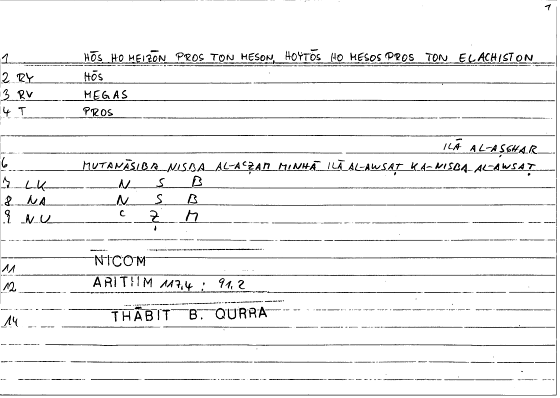 1
1 HŌS HO MEIZŌN PROS TON MESON, HOYTŌS HO MESOS PROS TON ELACHISTON
2 RY HŌS
3 RV MEGAS
4 T PROS
ILĀ AL-AṢGHAR
6 MUTANĀSIBA NISBA AL-AʿẒAM MINHĀ ILĀ AL-AWSAṬ KA-NISBA AL-AWSAṬ
7 LK N S B
8 NA N S B
9 NU ʿ Ẓ M
11 NICOM
12 ARITIIM 117,4 ; 91,2
14 THĀBIT B. QURRA